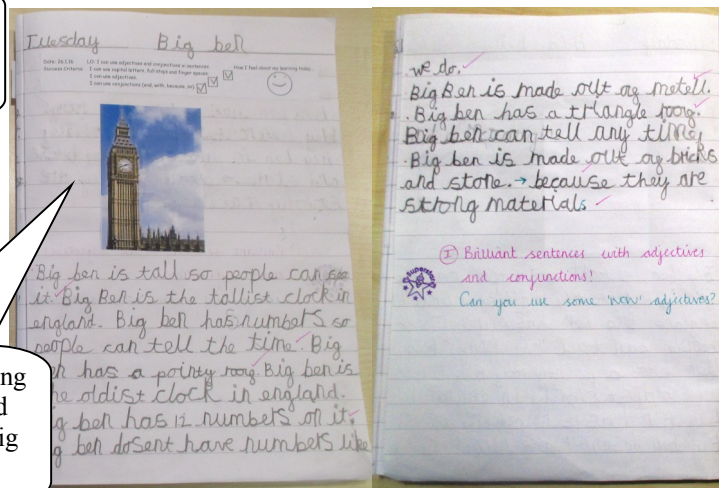 Tuesday Big ben
Date: 26.1.16 LO: I can use adjectives and conjunctions in sentences
Success Criteria: I can use capital letters, full stops and finger spaces.
I can use adjectives.
I can use conjunctions (and, with, because, so)
How I feel about my learning today...
Big ben is tall so people can see
it. Big Ben is the tallist clock in
england. Big ben has numbers so
people can tell the time. Big
has a pointy roog. Big ben is
the oldist clock in england.
ben has 12 numbers on it.
ben dosent have numbers like
ing
d
ig
we do.
Big Ben is made out og metell.
Big ben has a triangle roog.
Big ben can tell any time,
Big ben is made out og bricks
and stone. → because they are
strong materials
I Brilliant sentences with adjectives
and conjunctions!
Can you use some 'wow' adjectives?
Superstar